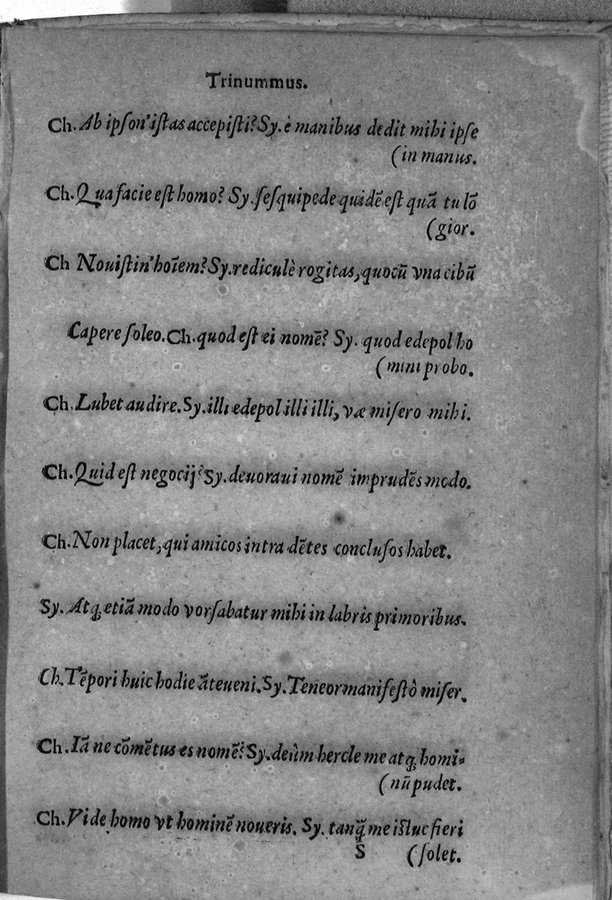 Trinummus.
Ch. Ab ipson' istas accepisti? Sy. è manibus dedit mihi ipse
(in manus.
Ch. Qua facie est homo? Sy. sesquipede quidē est quā tu lō
(gior.
Ch Nouistin' hoīem? Sy. rediculè rogitas, quocū vna cibū
Capere soleo. Ch. quod est ei nomē? Sy. quod edepol ho
(mini probo.
Ch. Lubet audire. Sy. illi edepol illi illi, væ misero mihi.
Ch. Quid est negocij? Sy. deuoraui nomē imprudēs modo.
Ch. Non placet, qui amicos intra dētes conclusos habet.
Sy. Atq; etiā modo vorsabatur mihi in labris primoribus.
Ch. Tēpori huic hodie āteueni. Sy. Teneor manifestò miser.
Ch. Iā ne cōmētus es nomē? Sy. deûm hercle me atq; homi-
(nū pudet.
Ch. Vide homo vt hominē noueris. Sy. tanq̄ me istuc fieri
S (solet.